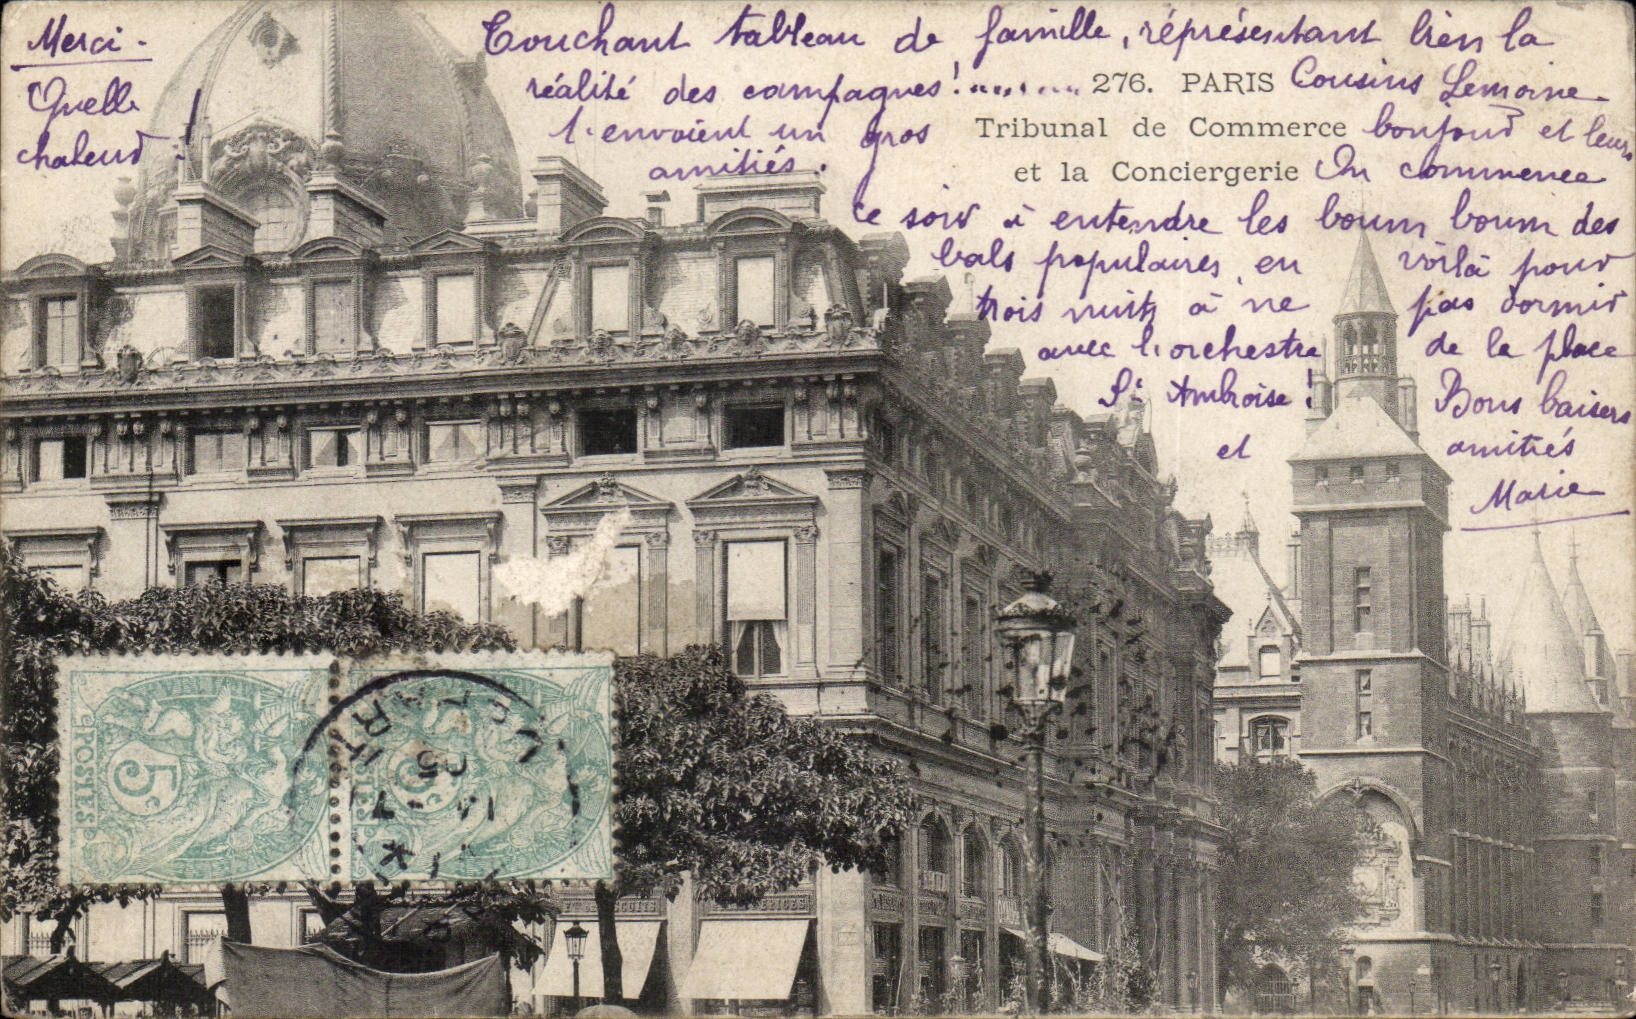 Merci -
Quelle
chaleur !
Touchant tableau de famille, réprésentant bien la
réalité des campagnes !.........
276. PARIS
Tribunal de Commerce
et la Conciergerie
Cousins Lemoine
t'envoient un gros
bonjour et leurs
amitiés.
On commence
ce soir à entendre les boum boum des
bals populaires, en voilà pour
trois nuits à ne pas dormir
avec l'orchestre de la place
St Ambroise !
Bons baisers
et amitiés
Marie
5c
POSTES
5c
POSTES
PARIS
14 - 7
05